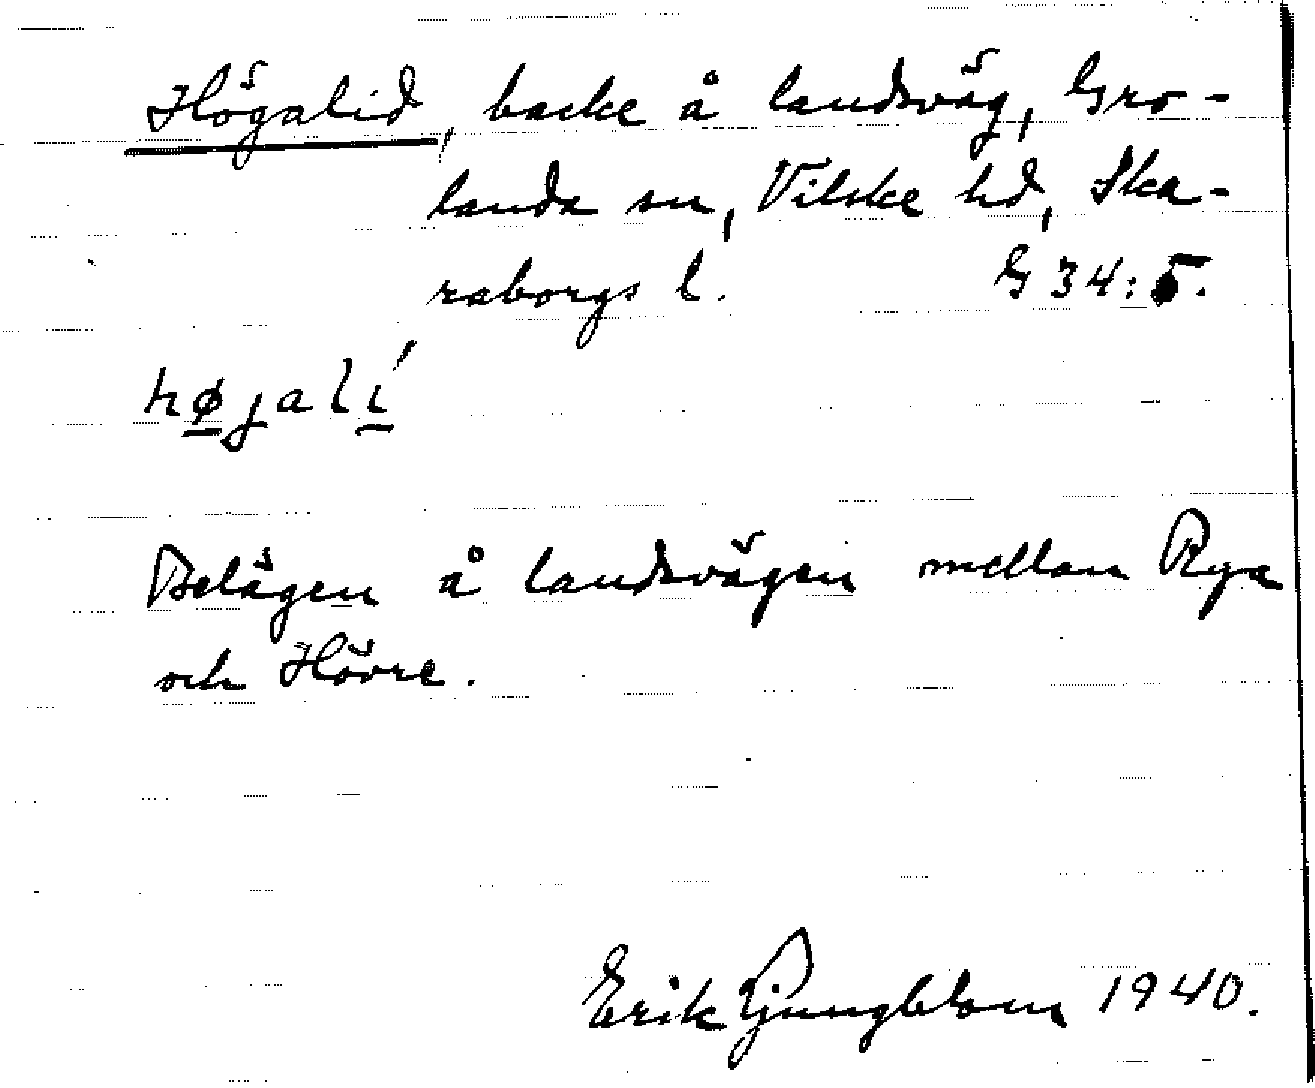 Högalid, backe å landsväg, Gro-
landa sn, Vilske hd, Ska-
raborgs l. G 34:5.
højalí
Belägen å landsvägen mellan Rya
och Hövre.
Erik Ljungblom 1940.